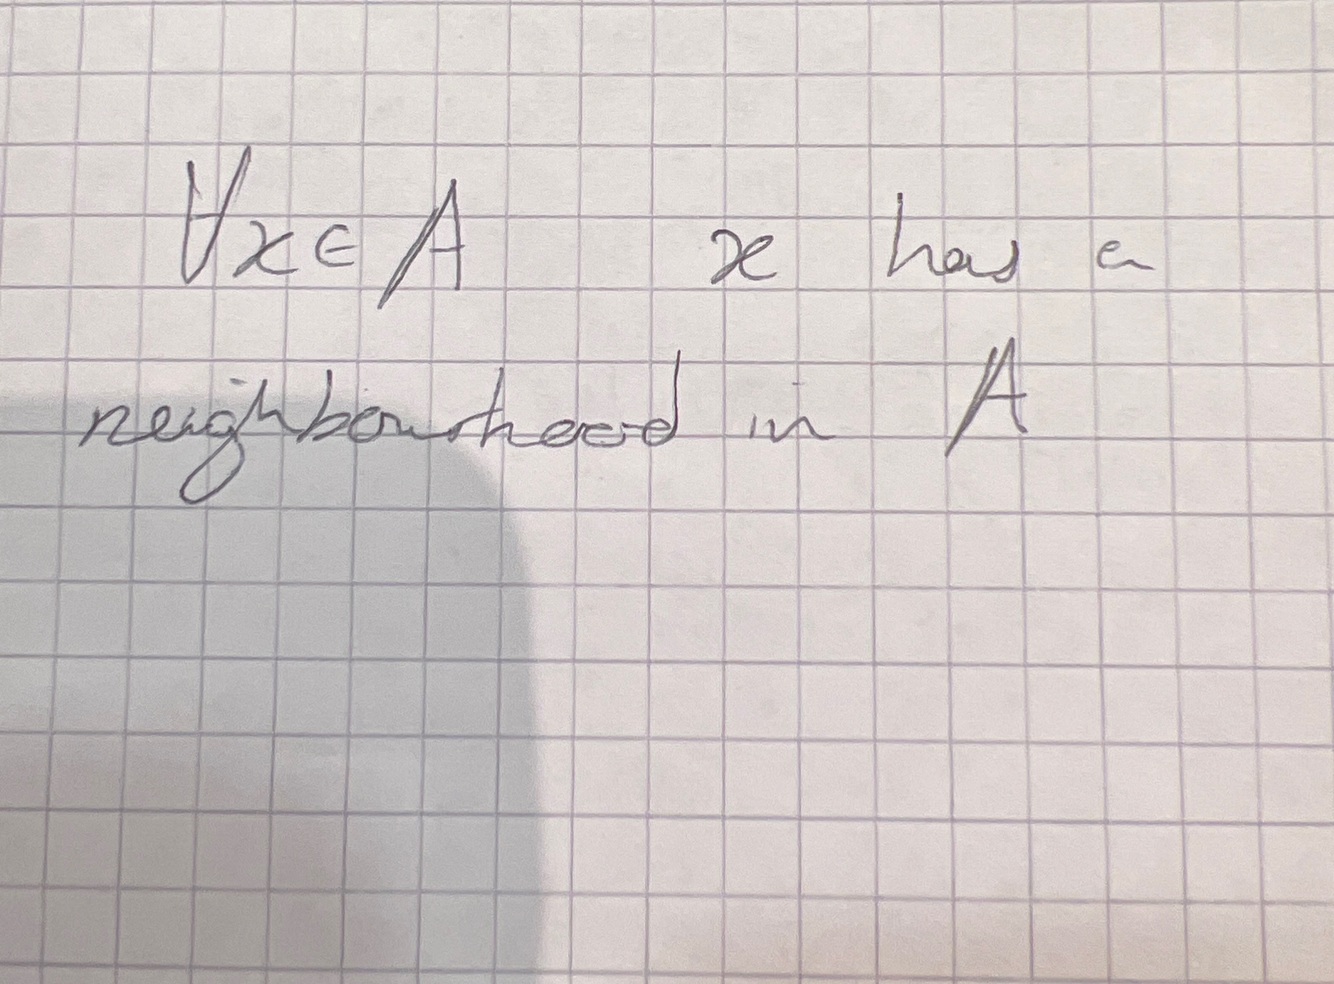 ∀x∈A x has a
neighbourhood in A